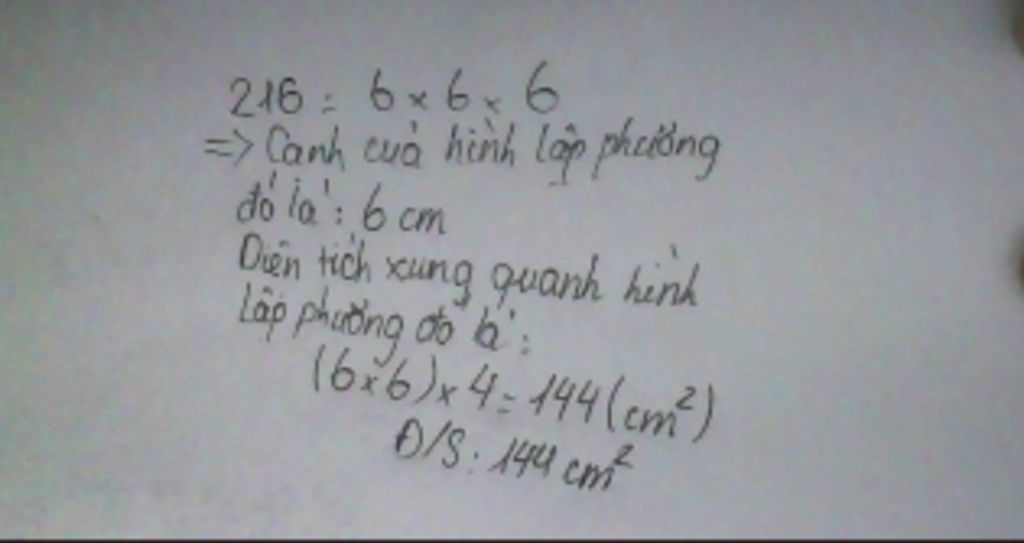 216 = 6 x 6 x 6
=> Cạnh của hình lập phương
đó là : 6 cm
Diện tích xung quanh hình
lập phương đó là :
(6 x 6) x 4 = 144 (cm²)
Đ/S : 144 cm²